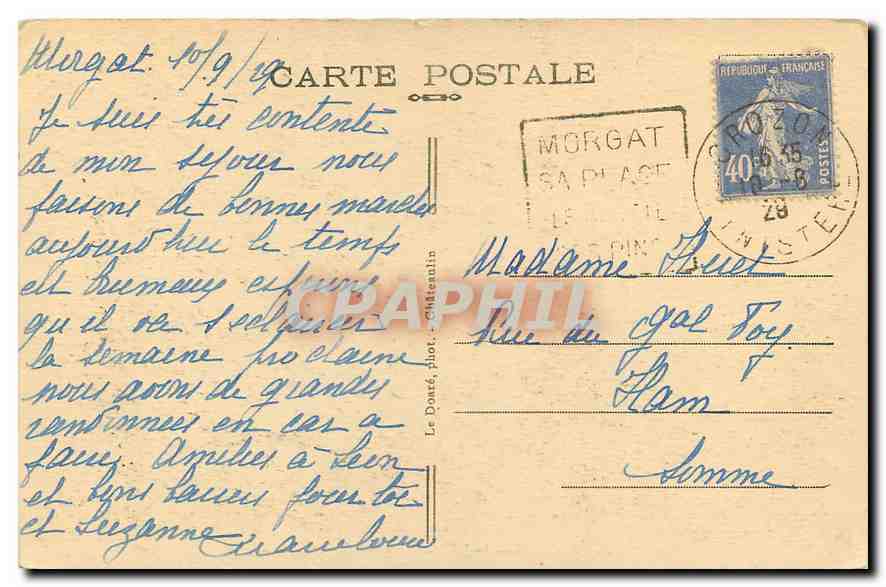 Morgat 10/9/29
CARTE POSTALE
Je suis très contente
de mon sejour nous
faisons de bonnes marches
aujourd'hui le temps
est brumeux esperons
qu'il va s'eclaircir
la semaine prochaine
nous avons de grandes
randonnées en car a
faire. Amities à Leon
et bons baisers pour toi
et Suzanne
Le Doaré, phot. - Châteaulin
CPAPHIL
MORGAT
SA PLAGE
REPUBLIQUE FRANÇAISE
40c
POSTES
CROZON
6 35
10 - 9
29
FINISTERE
Madame Huet
Rue du Gal Foy
Ham
Somme